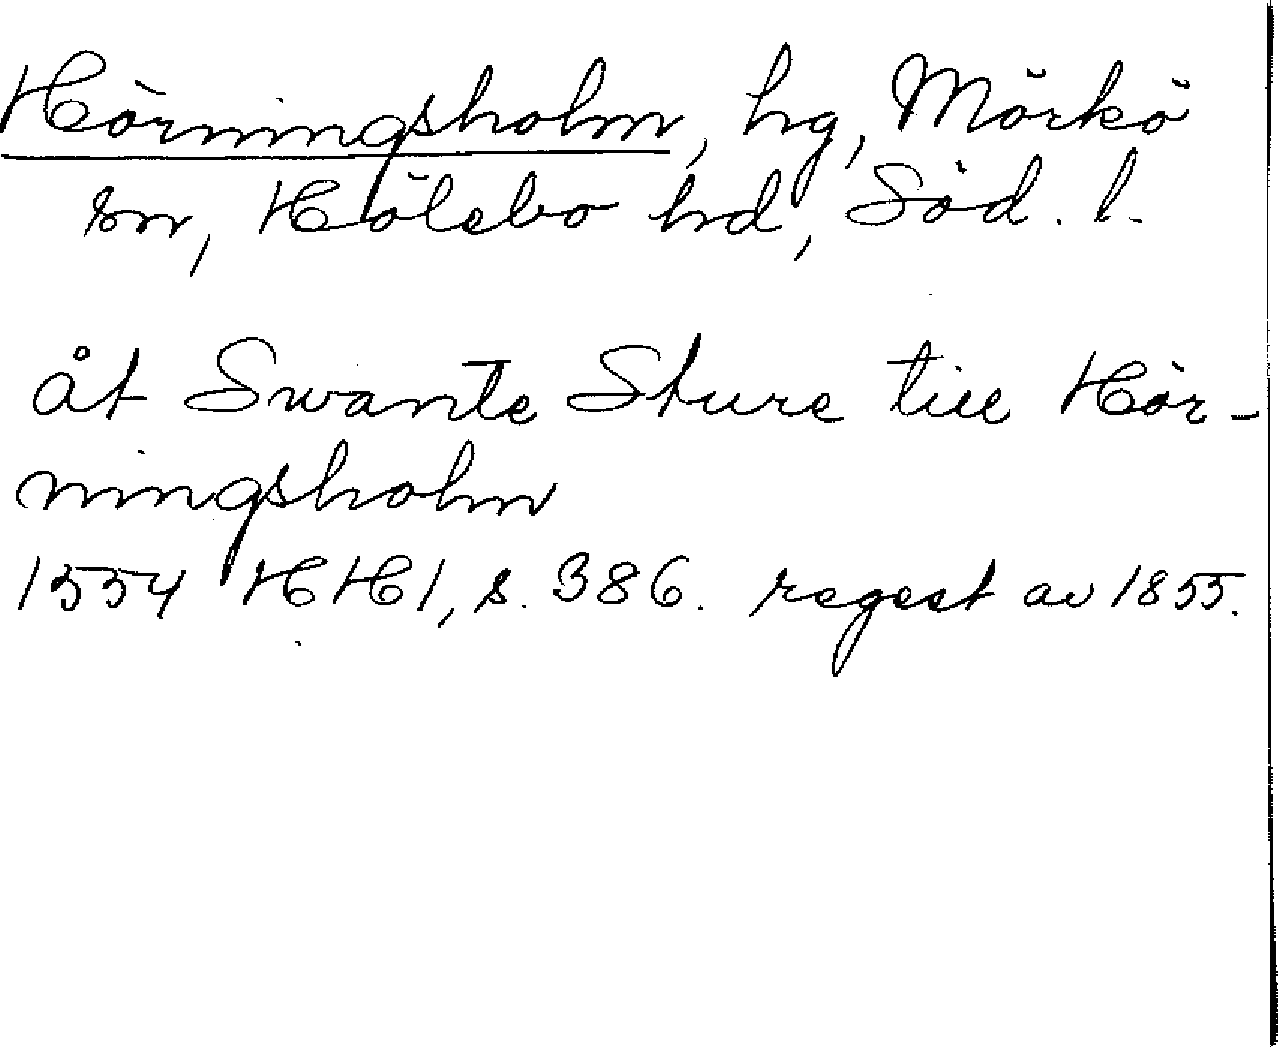 Hörningsholm, hg, Mörkö
sn, Hölebo hd, Söd. l.
åt Swante Sture till Hör-
ningsholm
1554 HH1, s. 386. regest av 1855.